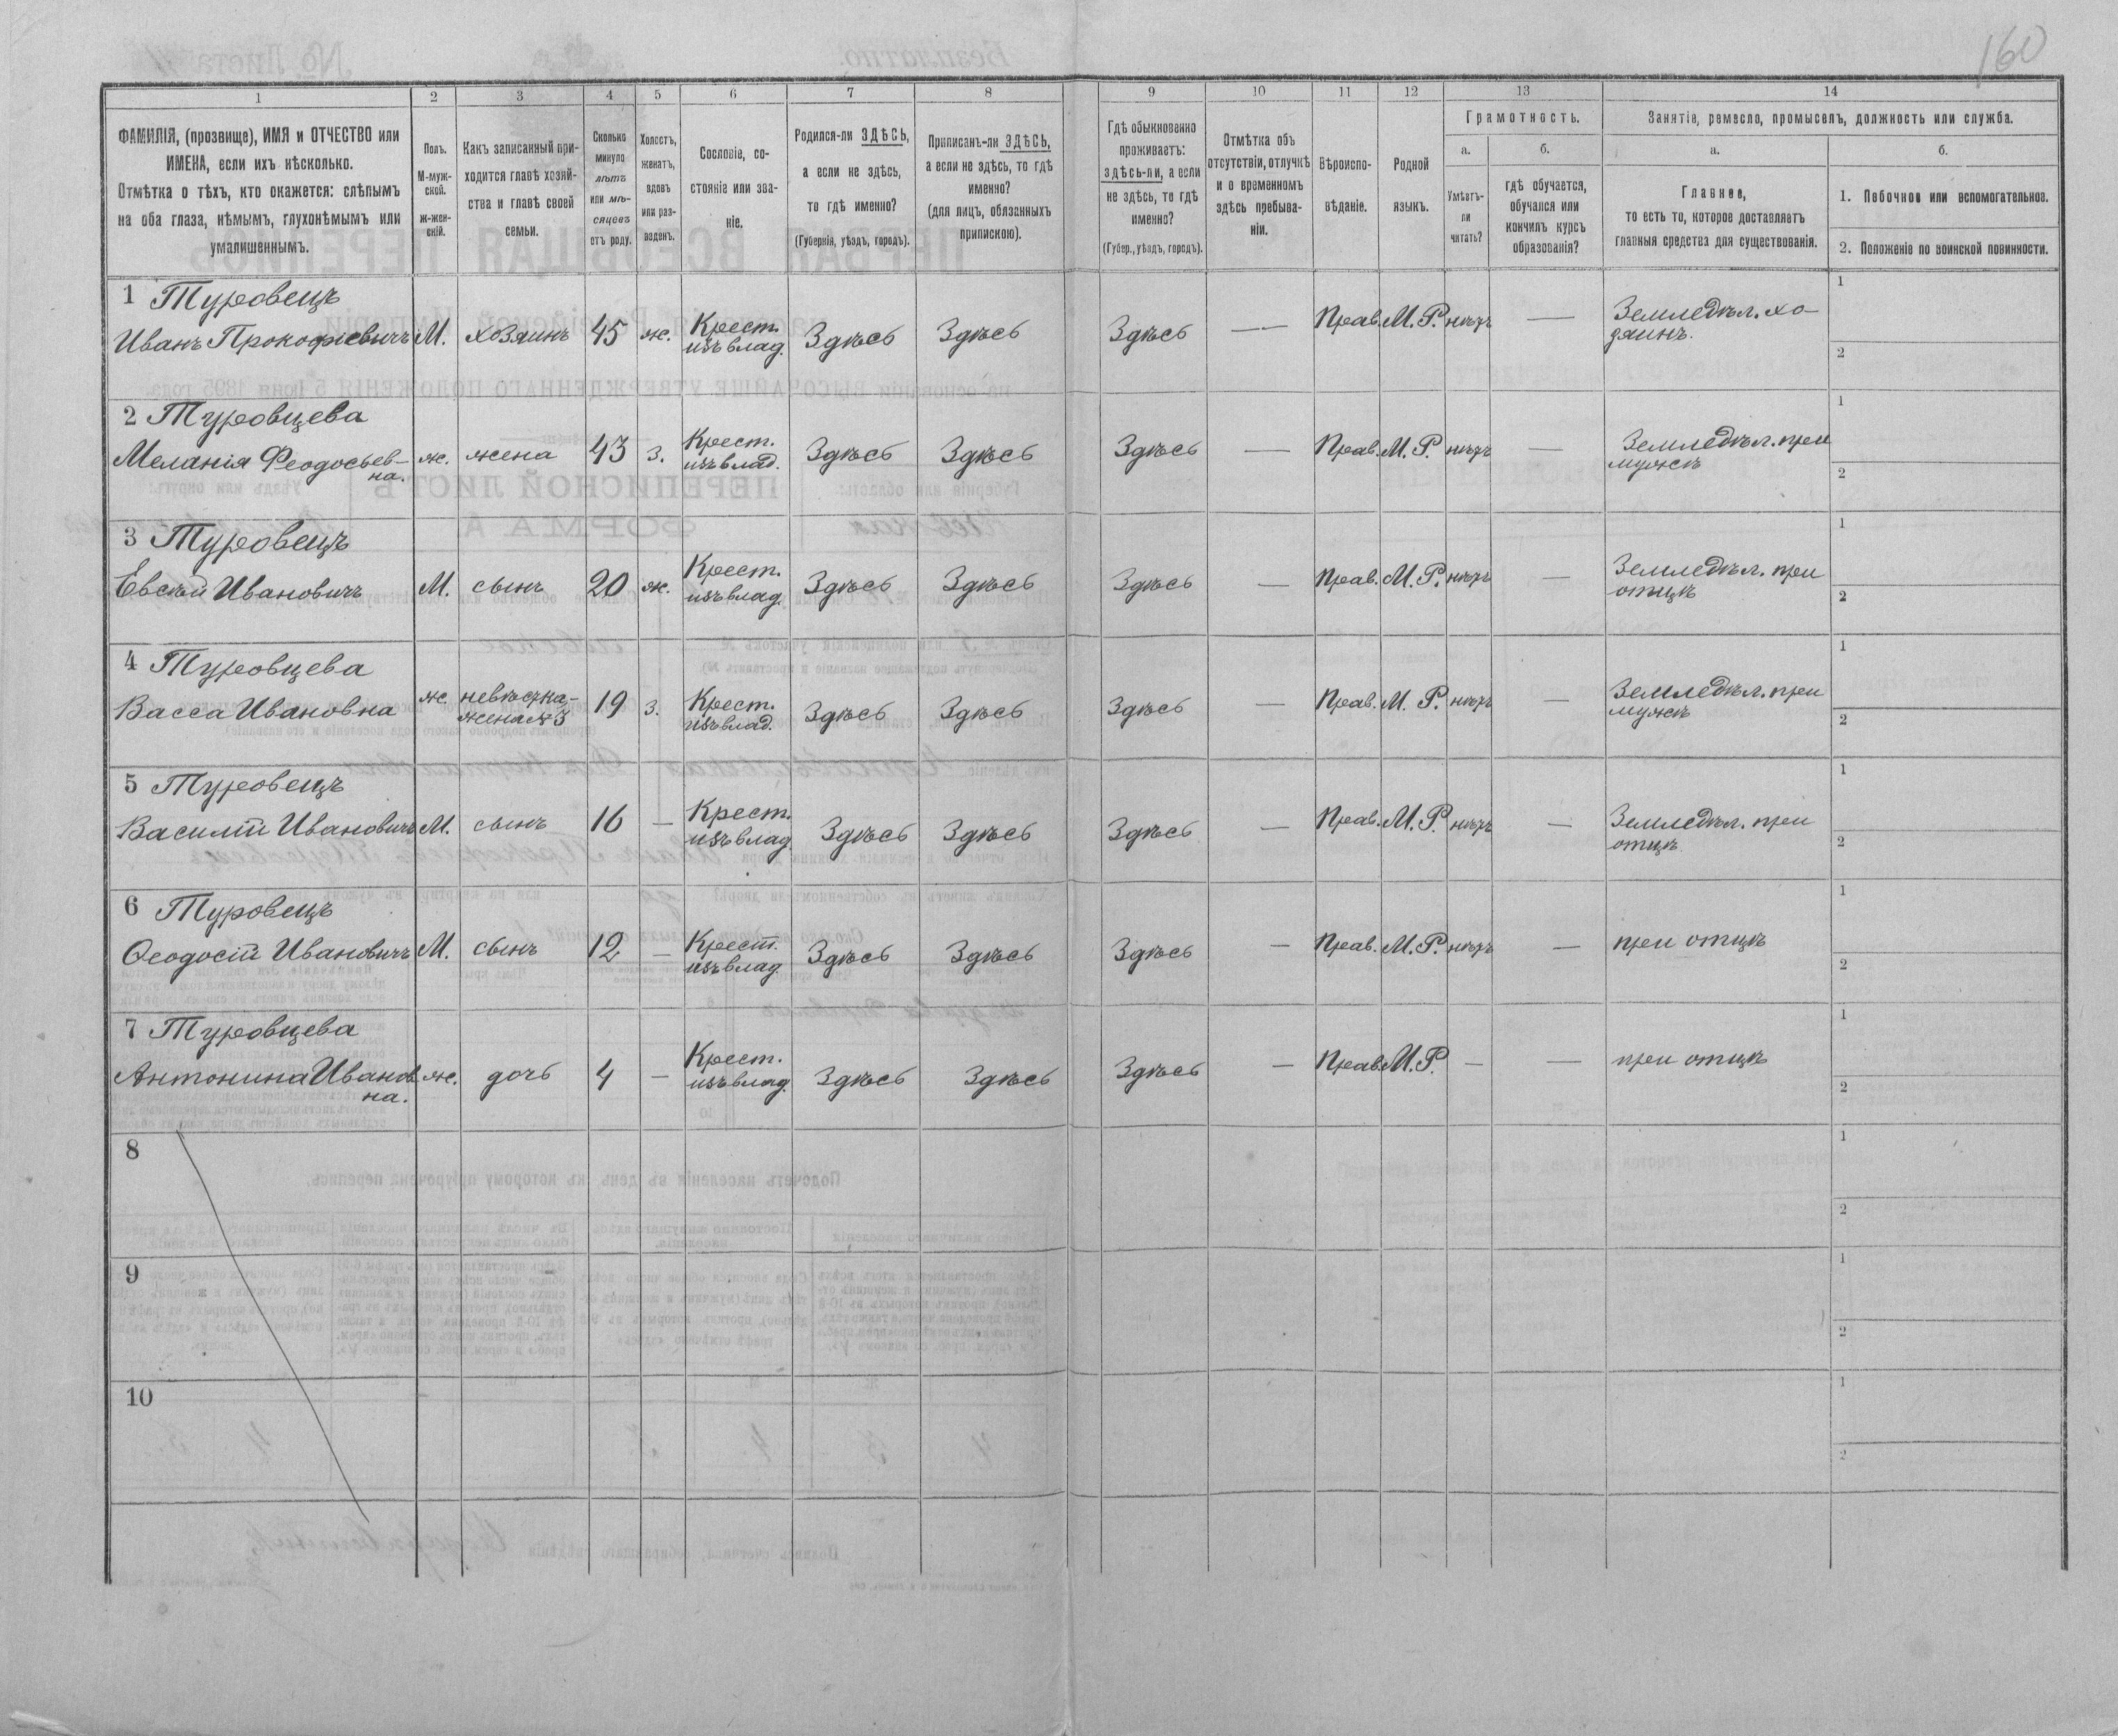 160
1 2 3 4 5 6 7 8 9 10 11 12 13 14
ФАМИЛІЯ, (прозвище), ИМЯ и ОТЧЕСТВО или
ИМЕНА, если ихъ нѣсколько.
Отмѣтка о тѣхъ, кто окажется: слѣпымъ
на оба глаза, нѣмымъ, глухонѣмымъ или
умалишеннымъ.
Полъ.
М-муж-
ской.
ж-жен-
скій.
Какъ записанный при-
ходится главѣ хозяй-
ства и главѣ своей
семьи.
Сколько
минуло
лѣтъ
или мѣ-
сяцевъ
отъ роду.
Холостъ,
женатъ,
вдовъ
или раз-
веденъ.
Сословіе, со-
стояніе или зва-
ніе.
Родился-ли ЗДѢСЬ,
а если не здѣсь,
то гдѣ именно?
(Губернія, уѣздъ, городъ).
Приписанъ-ли ЗДѢСЬ,
а если не здѣсь, то гдѣ
именно?
(для лицъ, обязанныхъ
припискою).
Гдѣ обыкновенно
проживаетъ:
здѣсь-ли, а если
не здѣсь, то гдѣ
именно?
(Губер., уѣздъ, городъ).
Отмѣтка объ
отсутствіи, отлучкѣ
и о временномъ
здѣсь пребыва-
ніи.
Вѣроиспо-
вѣданіе.
Родной
языкъ.
Грамотность.
а.
Умѣетъ-
ли
читать?
б.
гдѣ обучается,
обучался или
кончилъ курсъ
образованія?
Занятіе, ремесло, промыселъ, должность или служба.
а.
Главное,
то есть то, которое доставляетъ
главныя средства для существованія.
б.
1. Побочное или вспомогательное.
2. Положеніе по воинской повинности.
1 Туровецъ
Иванъ Прокофіевичъ М. хозяинъ 45 ж. Крест. изъ влад. Здѣсь Здѣсь Здѣсь — Прав. М. Р. нѣтъ — Земледѣл. хо-
зяинъ.
1
2
2 Туровцева
Меланія Феодосьев-
на. ж. жена 43 з. Крест. изъ влад. Здѣсь Здѣсь Здѣсь — Прав. М. Р. нѣтъ — Земледѣл. при
мужѣ
1
2
3 Туровецъ
Евсѣй Ивановичъ М. сынъ 20 ж. Крест. изъ влад. Здѣсь Здѣсь Здѣсь — Прав. М. Р. нѣтъ — Земледѣл. при
отцѣ
1
2
4 Туровцева
Васса Ивановна ж. невѣстка-
жена №3 19 з. Крест. изъ влад. Здѣсь Здѣсь Здѣсь — Прав. М. Р. нѣтъ — Земледѣл. при
мужѣ
1
2
5 Туровецъ
Василій Ивановичъ М. сынъ 16 — Крест. изъ влад. Здѣсь Здѣсь Здѣсь — Прав. М. Р. нѣтъ — Земледѣл. при
отцѣ
1
2
6 Туровецъ
Ѳеодосій Ивановичъ М. сынъ 12 — Крест. изъ влад. Здѣсь Здѣсь Здѣсь — Прав. М. Р. нѣтъ — при отцѣ
1
2
7 Туровцева
Антонина Иванов
на. ж. дочь 4 — Крест. изъ влад. Здѣсь Здѣсь Здѣсь — Прав. М. Р. — — при отцѣ
1
2
8
1
2
9
1
2
10
1
2